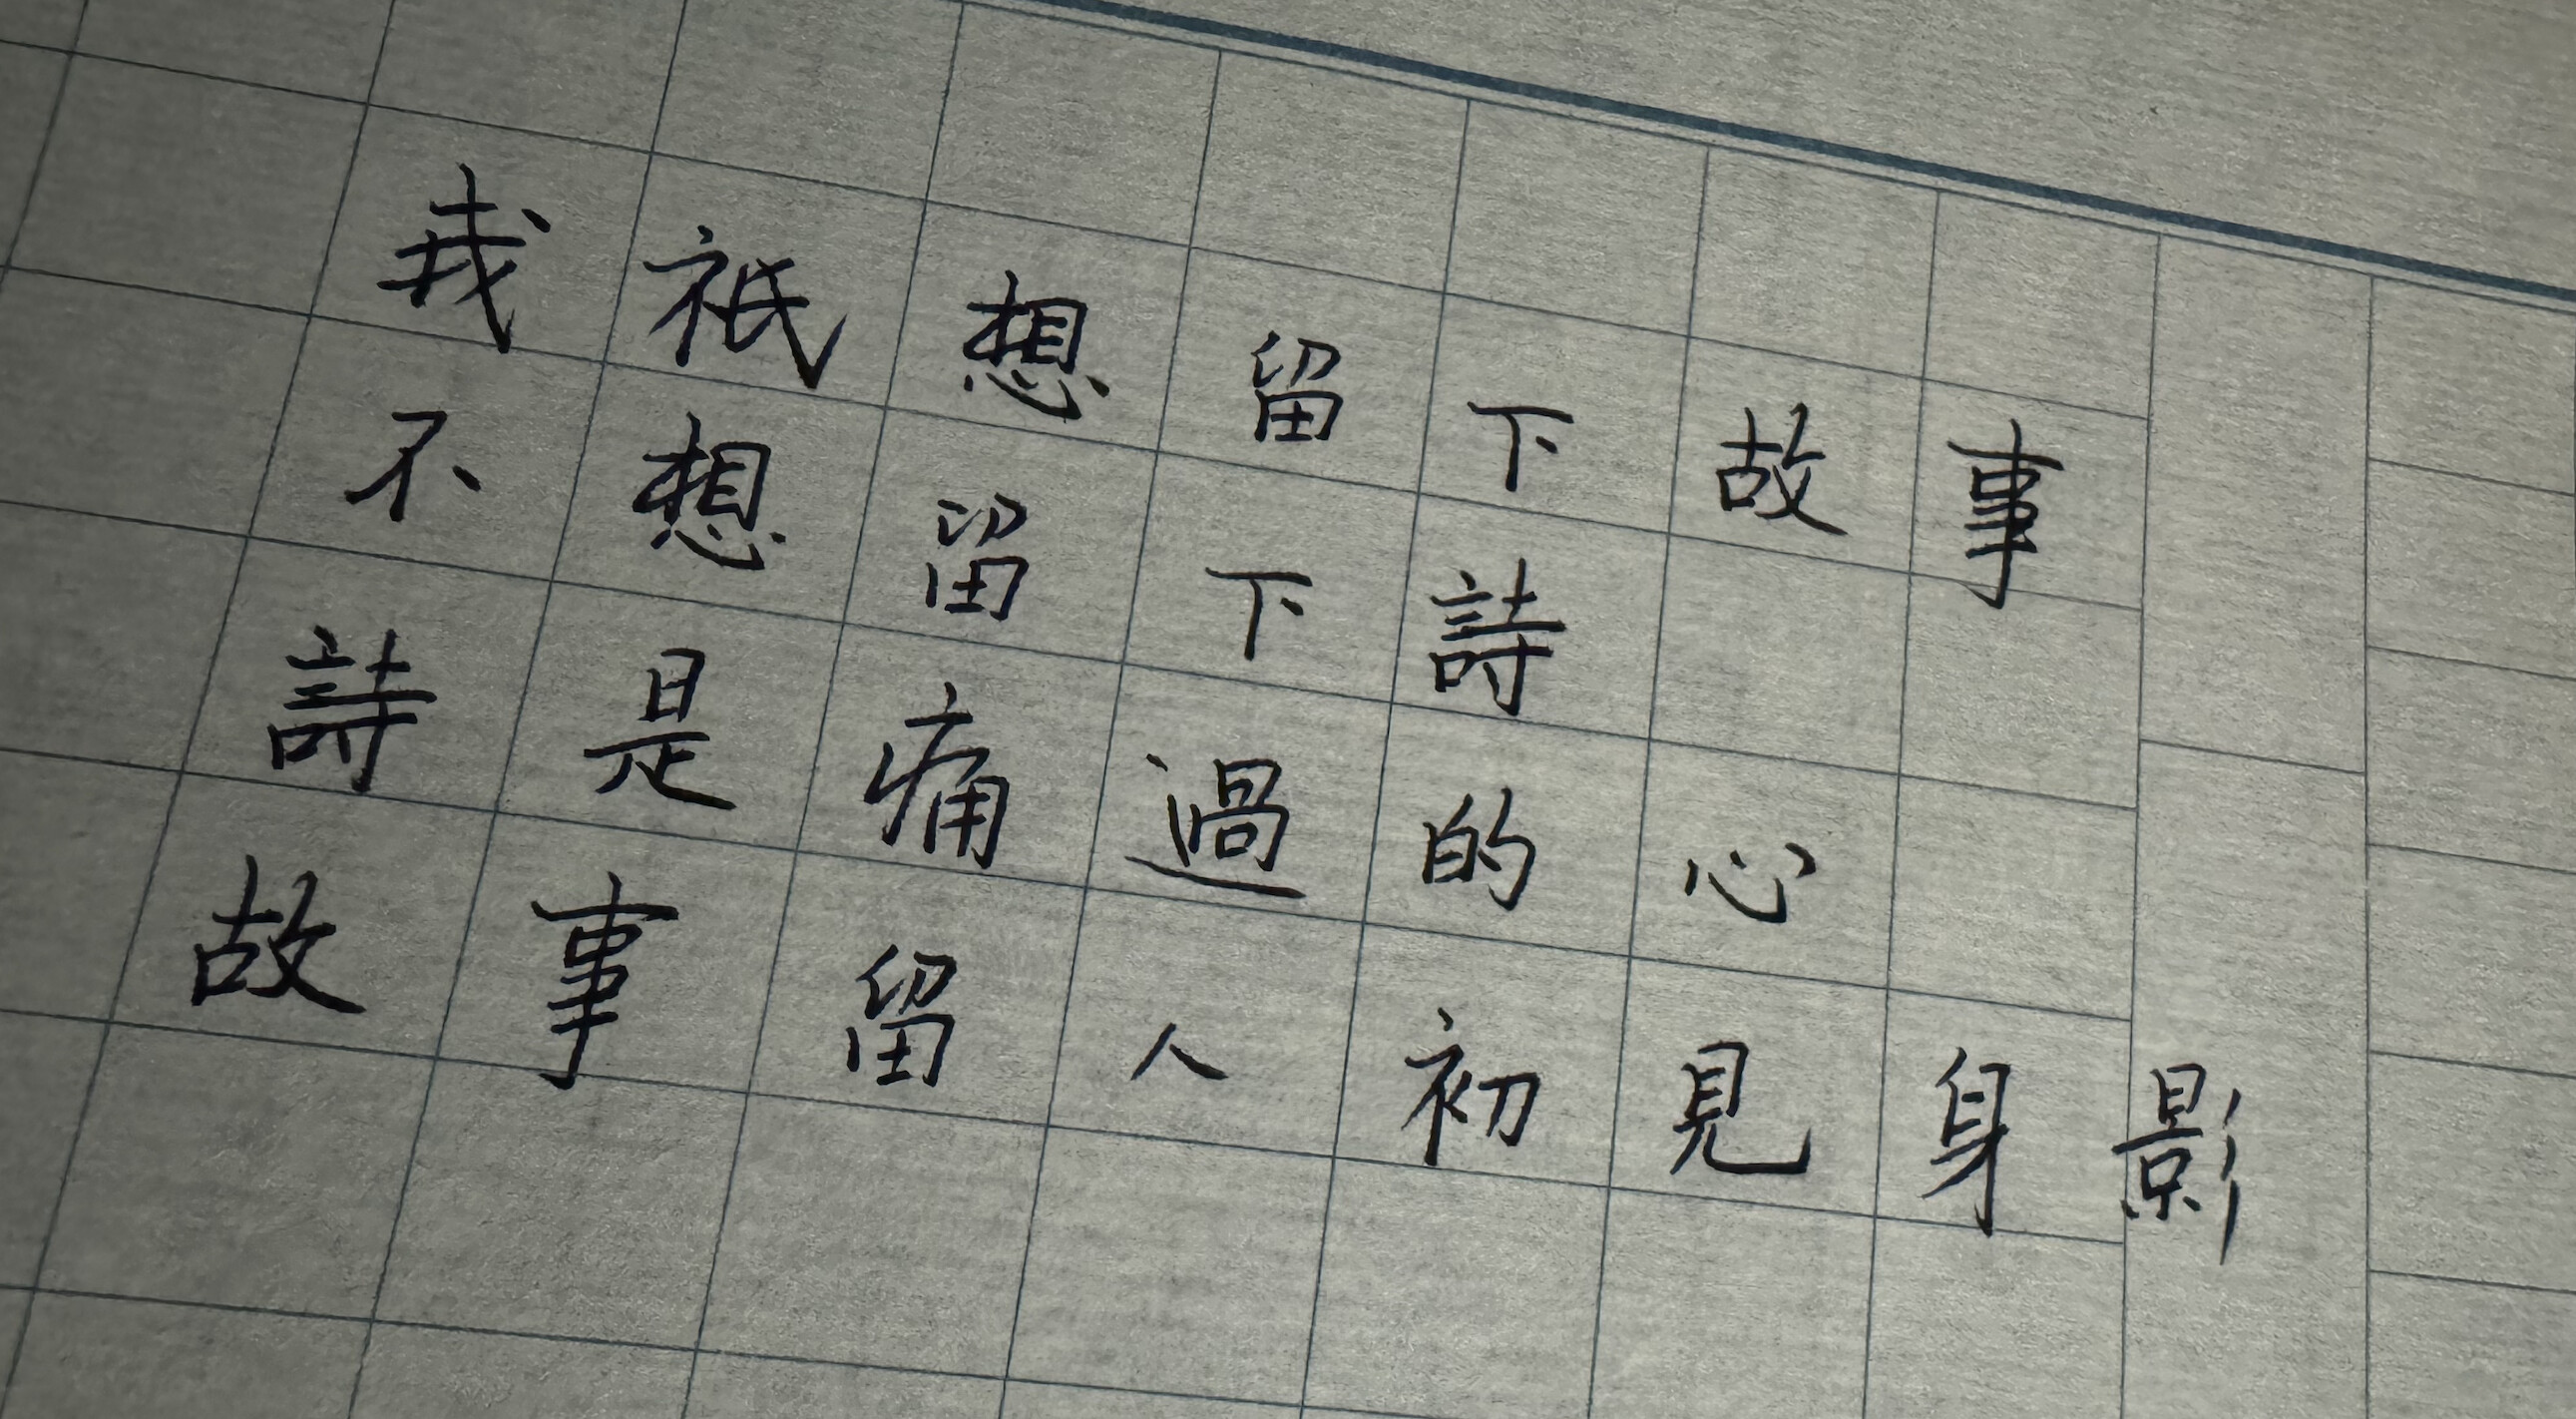 我祇想留下故事
不想留下詩
詩是痛過的心
故事留人初見身影